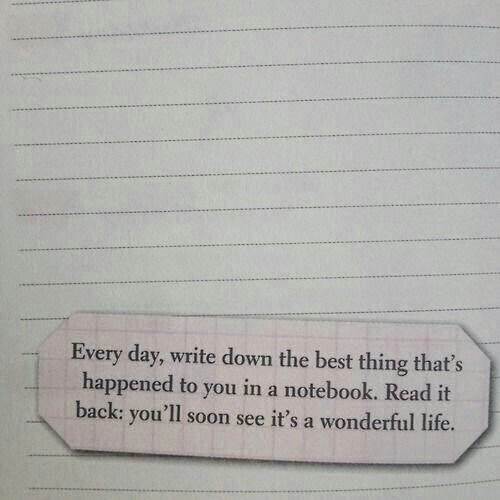 Every day, write down the best thing that's
happened to you in a notebook. Read it
back: you'll soon see it's a wonderful life.